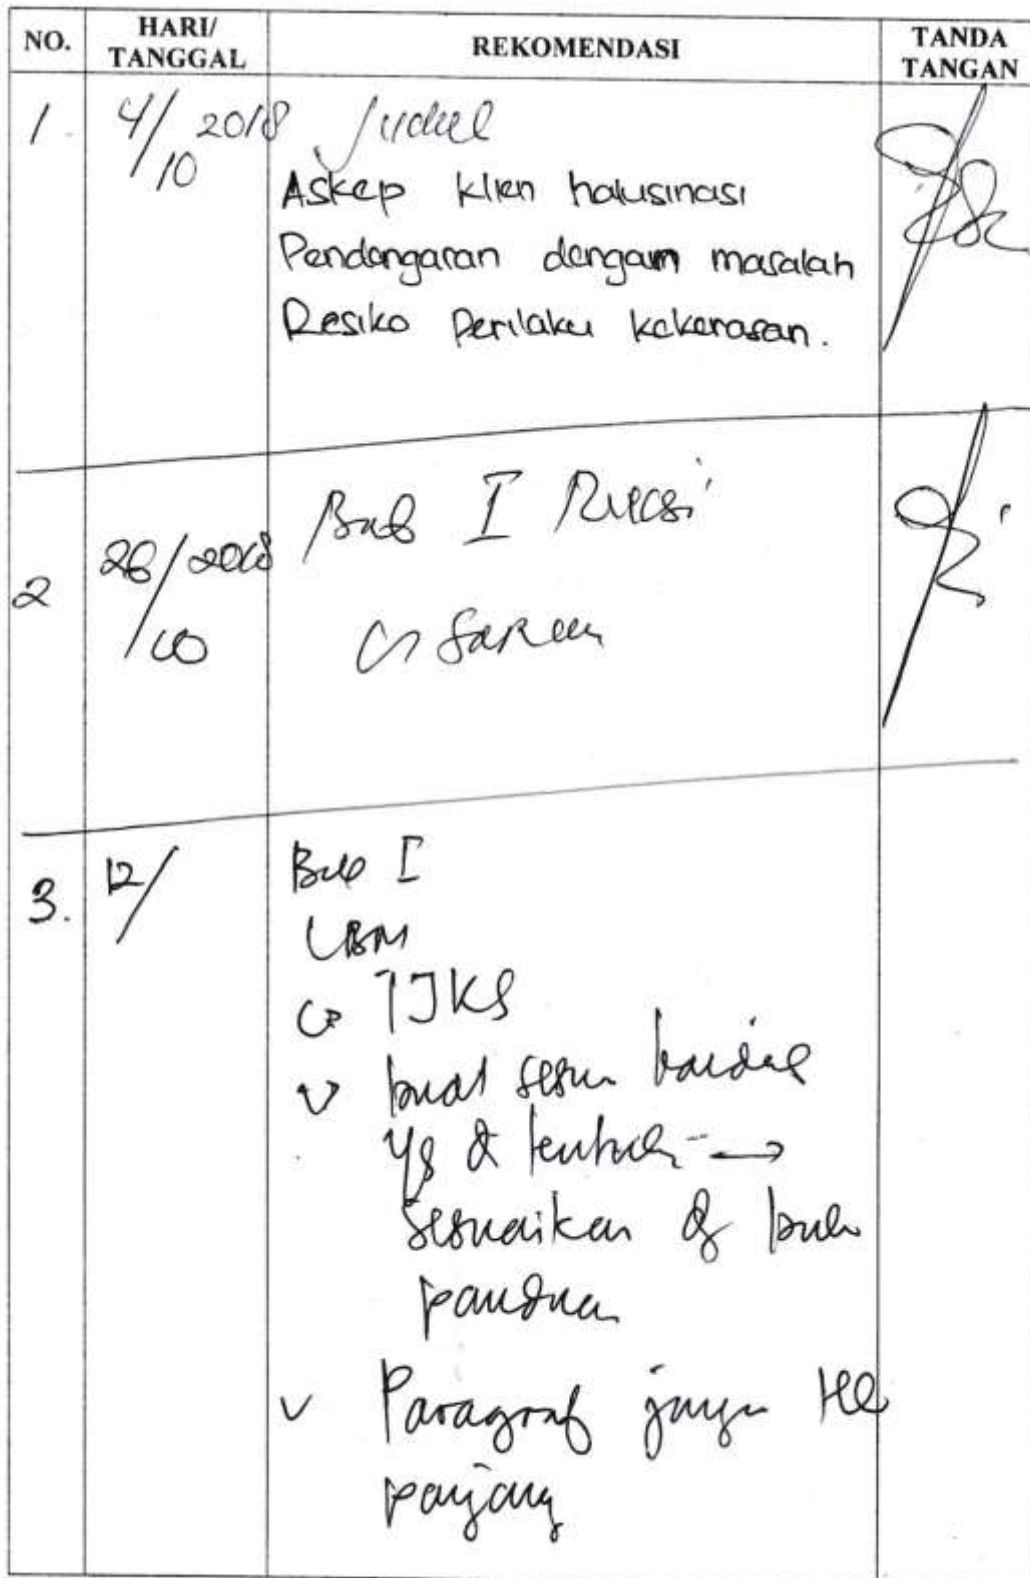 NO. HARI/ TANGGAL REKOMENDASI TANDA TANGAN
1. 4/10 2018 Judul
Askep klien halusinasi
Pendengaran dengan masalah
Resiko Perilaku kekerasan.
2 26/10 2018 Bab I Revisi
Saran
3. 12/ Bab I
LBM
IJKS
buat sesuai
yg
sesuaikan dg buku
panduan
Paragraf jangan
panjang